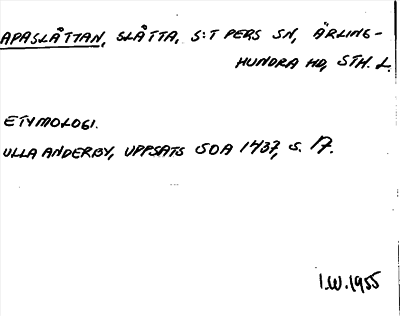 APASLÅTTAN, SLÅTTA, S:T PERS SN, ÄRLING-
HUNDRA HD, STH. L.
ETYMOLOGI.
ULLA ANDERBY, UPPSATS SOA 1437, S. 17.
I.W. 1955